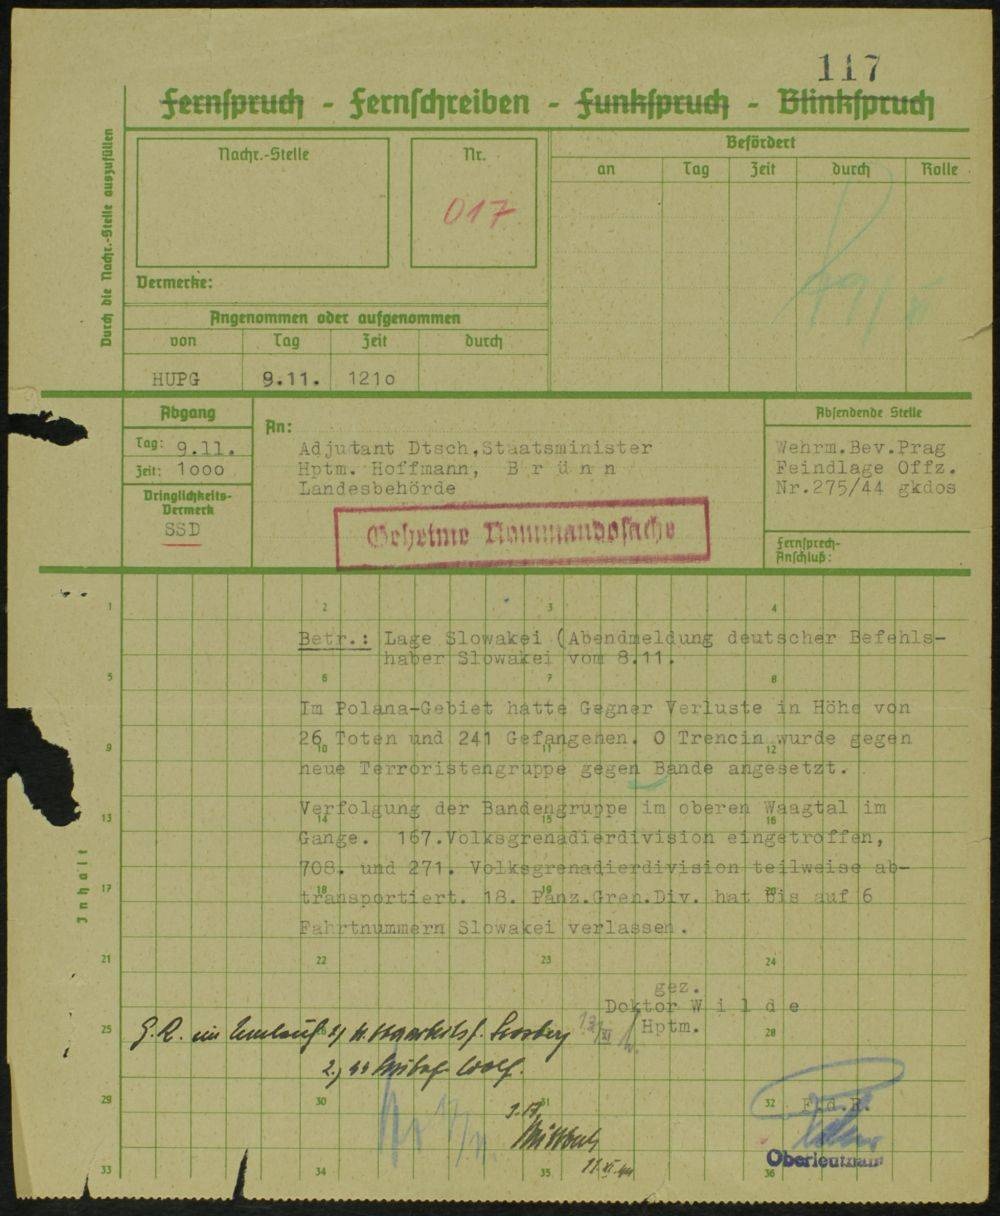 117
Fernspruch - Fernschreiben - Funkspruch - Blinkspruch
Durch die Nachr.-Stelle auszufüllen
Nachr.-Stelle
Nr.
017
Befördert
an Tag Zeit durch Rolle
Vermerke:
Angenommen oder aufgenommen
von Tag Zeit durch
HUPG 9.11. 121o
Abgang
Tag: 9.11.
Zeit: 1ooo
Dringlichkeits-
Vermerk
SSD
An:
Adjutant Dtsch,Staatsminister
Hptm. Hoffmann, B r ü n n
Landesbehörde
Geheime Kommandosache
Absendende Stelle
Wehrm.Bev.Prag
Feindlage Offz.
Nr.275/44 gkdos
Fernsprech-
Anschluß:
Inhalt
1 2 3 4
Betr.: Lage Slowakei (Abendmeldung deutscher Befehls-
haber Slowakei vom 8.11.
5 6 7 8
Im Polana-Gebiet hatte Gegner Verluste in Höhe von
26 Toten und 241 Gefangenen. O Trencin wurde gegen
9 10 11 12
neue Terroristengruppe gegen Bande angesetzt.
Verfolgung der Bandengruppe im oberen Waagtal im
13 14 15 16
Gange. 167.Volksgrenadierdivision eingetroffen,
708. und 271. Volksgrenadierdivision teilweise ab-
17 18 19 20
transportiert. 18. Panz.Gren.Div. hat bis auf 6
Fahrtnummern Slowakei verlassen.
21 22 23 24
gez.
Doktor W i l d e
Hptm.
25 28
2.)
29 30 31 32
F.d.R.
Oberleutnant
33 34 35 36